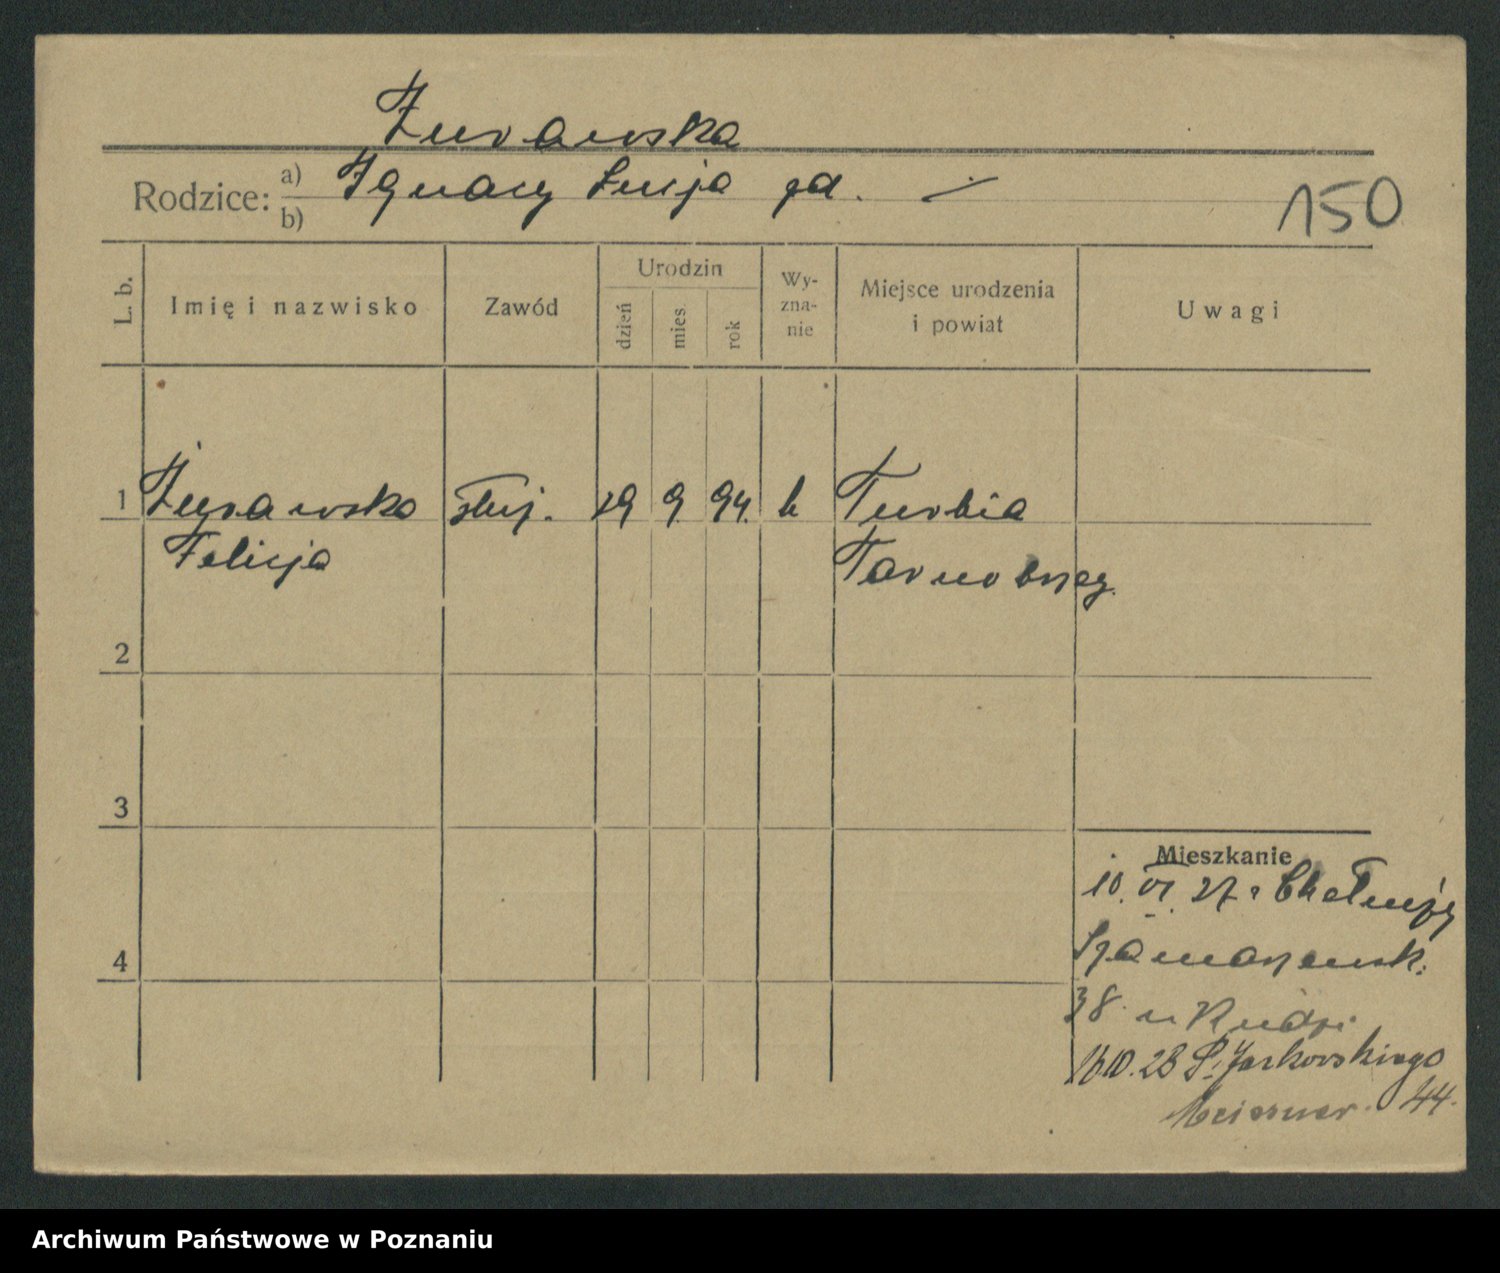 Żurawska
Rodzice: a) Ignacy Łucja zd. —
b)
150
L. b.
Imię i nazwisko
Zawód
Urodzin
dzień
mies.
rok
Wy-
zna-
nie
Miejsce urodzenia
i powiat
Uwagi
1 Żurawska służ. 29 9. 94. k Turbia
Felicja Tarnobrzeg.
2
3
4
Mieszkanie
10. VI. 27 z Chełmży
Szamarzewsk.
38 u Rudzi
16 10. 28 Jackowskiego
Meissner. 44.
Archiwum Państwowe w Poznaniu